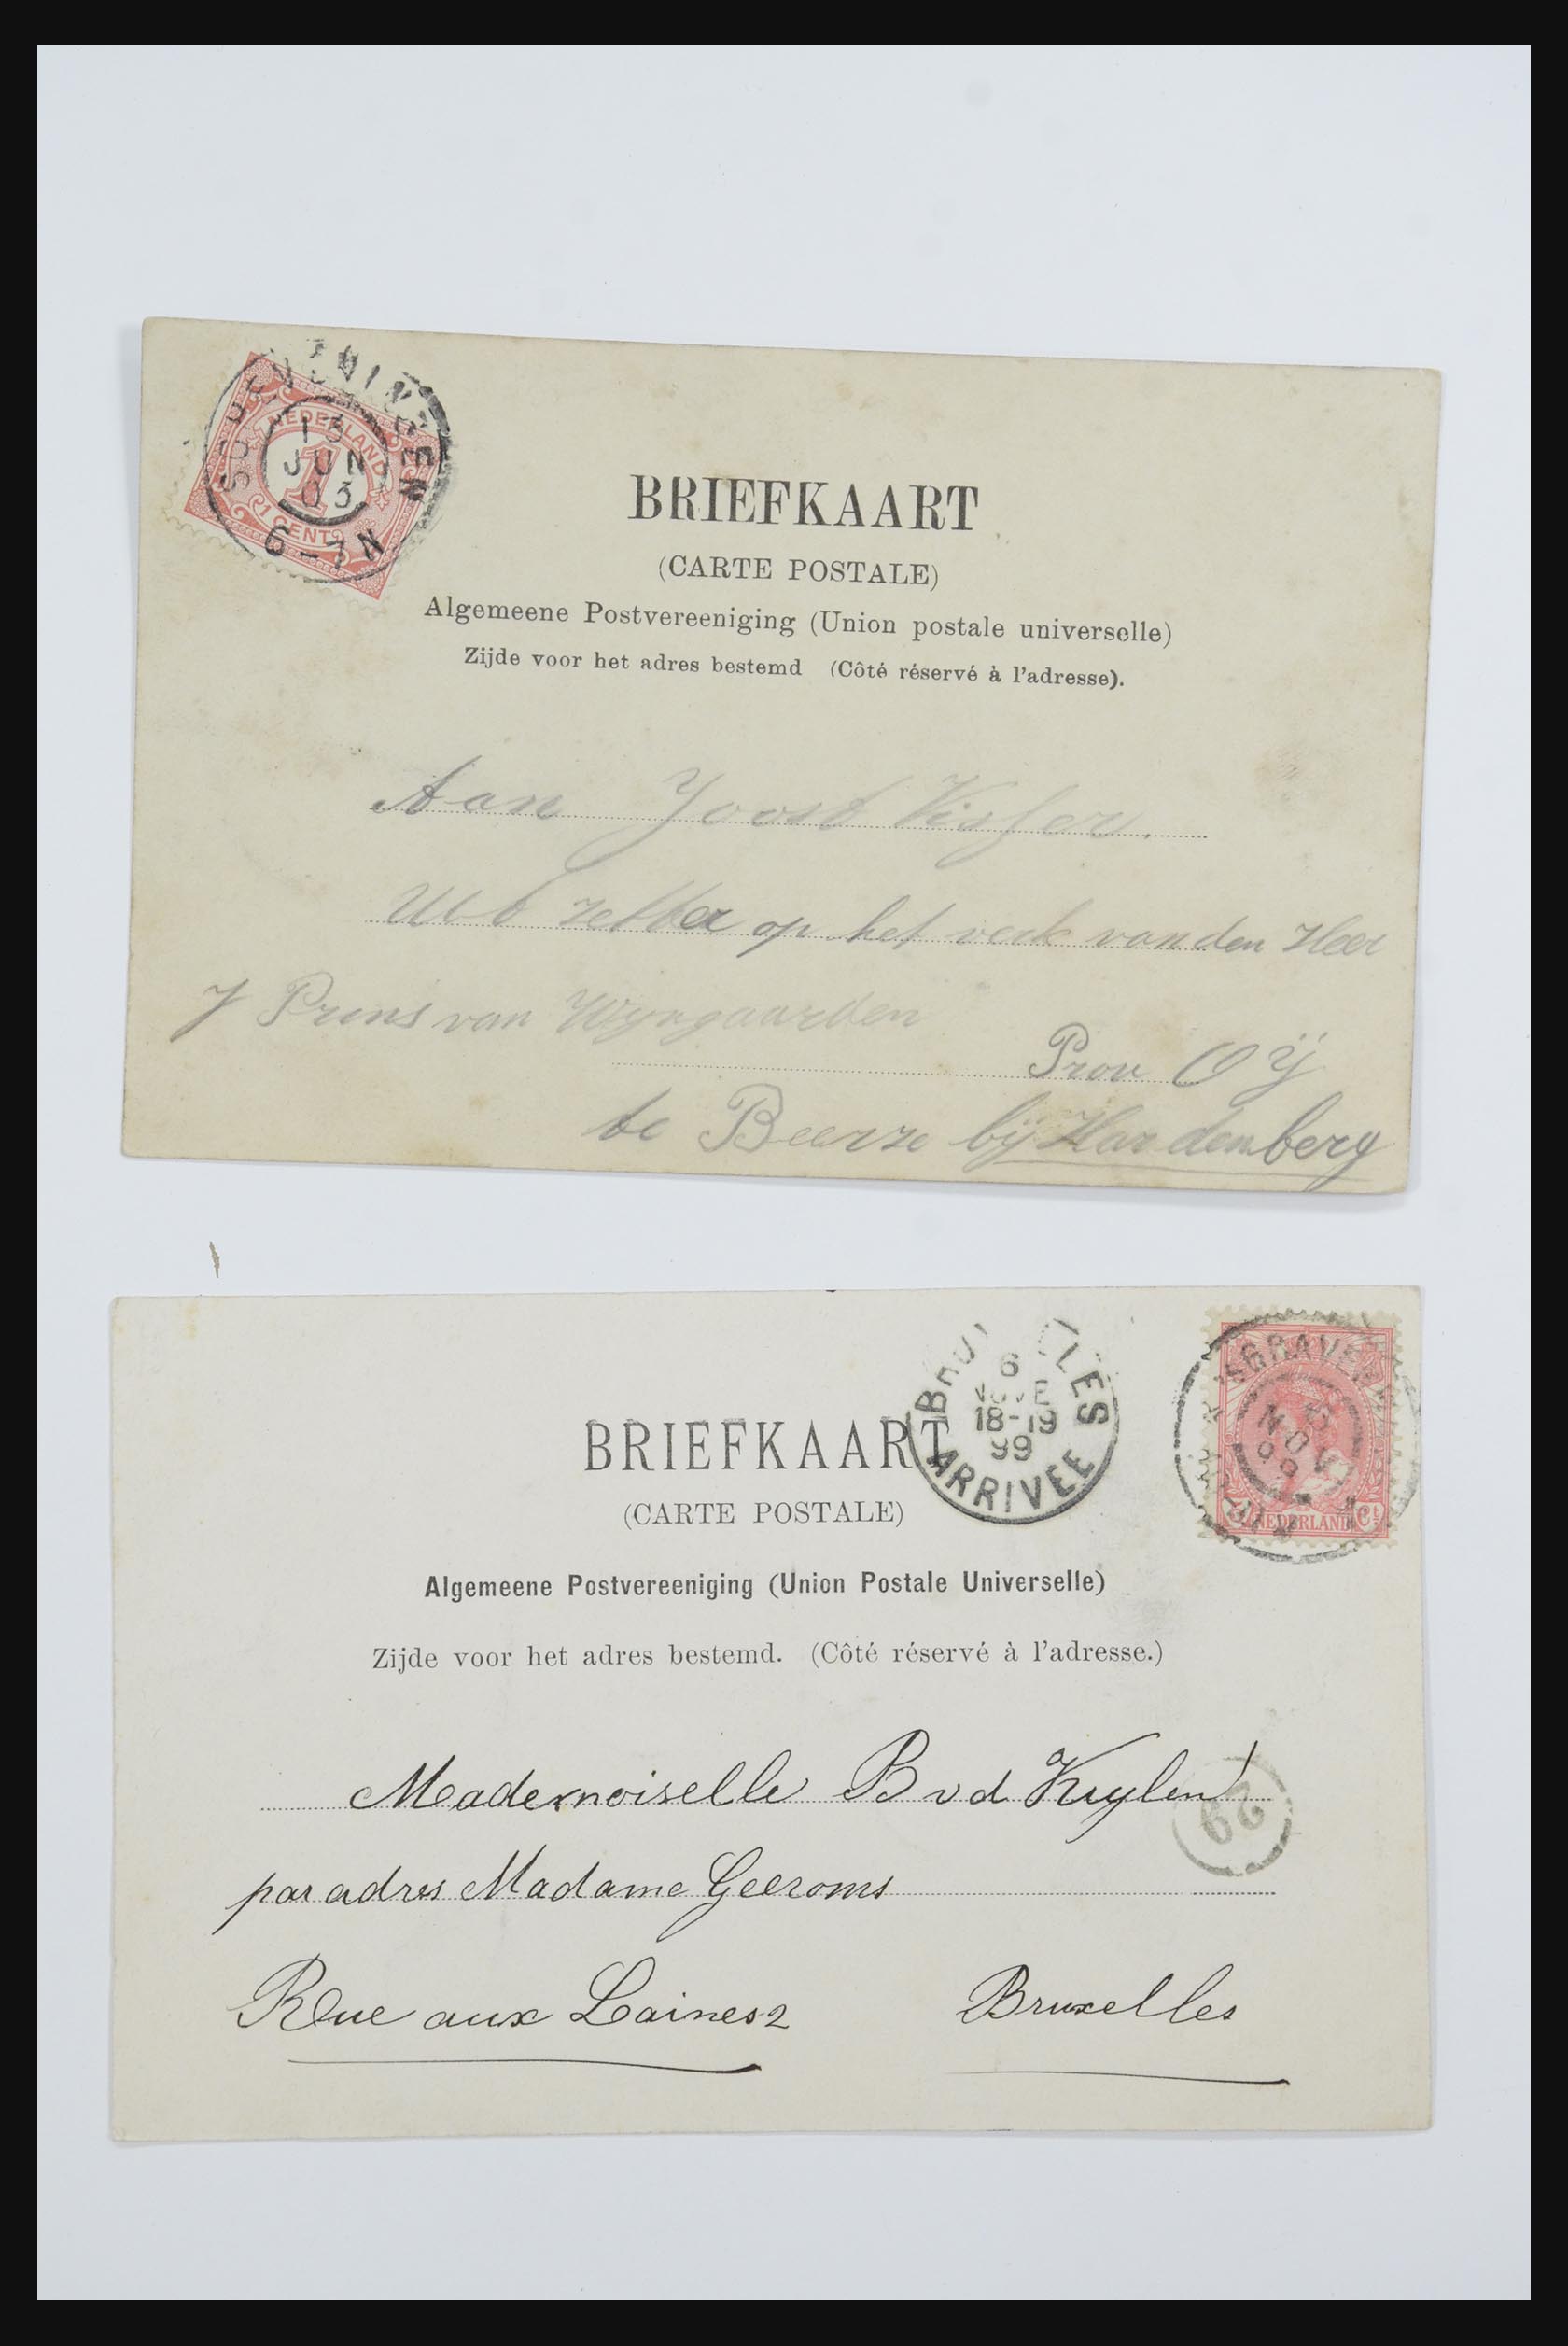 SCHEVENINGEN
NEDERLAND
13
JUN
03
1
1 CENT
6-7N
BRIEFKAART
(CARTE POSTALE)
Algemeene Postvereeniging (Union postale universelle)
Zijde voor het adres bestemd (Côté réservé à l'adresse).
Aan Joost Visser.
op het verk van den Heer
J Prins van Wyngaarden
Prov OIJ
te Beerze bij Hardenberg
BRUXELLES
6
NOVE
18-19
99
ARRIVEE
'SGRAVENH
6
NOV
99
NEDERLAND
5 Ct
BRIEFKAART
(CARTE POSTALE)
Algemeene Postvereeniging (Union Postale Universelle)
Zijde voor het adres bestemd. (Côté réservé à l'adresse.)
Mademoiselle B v d Kuylen
29
par adres Madame Geeroms
Rue aux Laines 2 Bruxelles